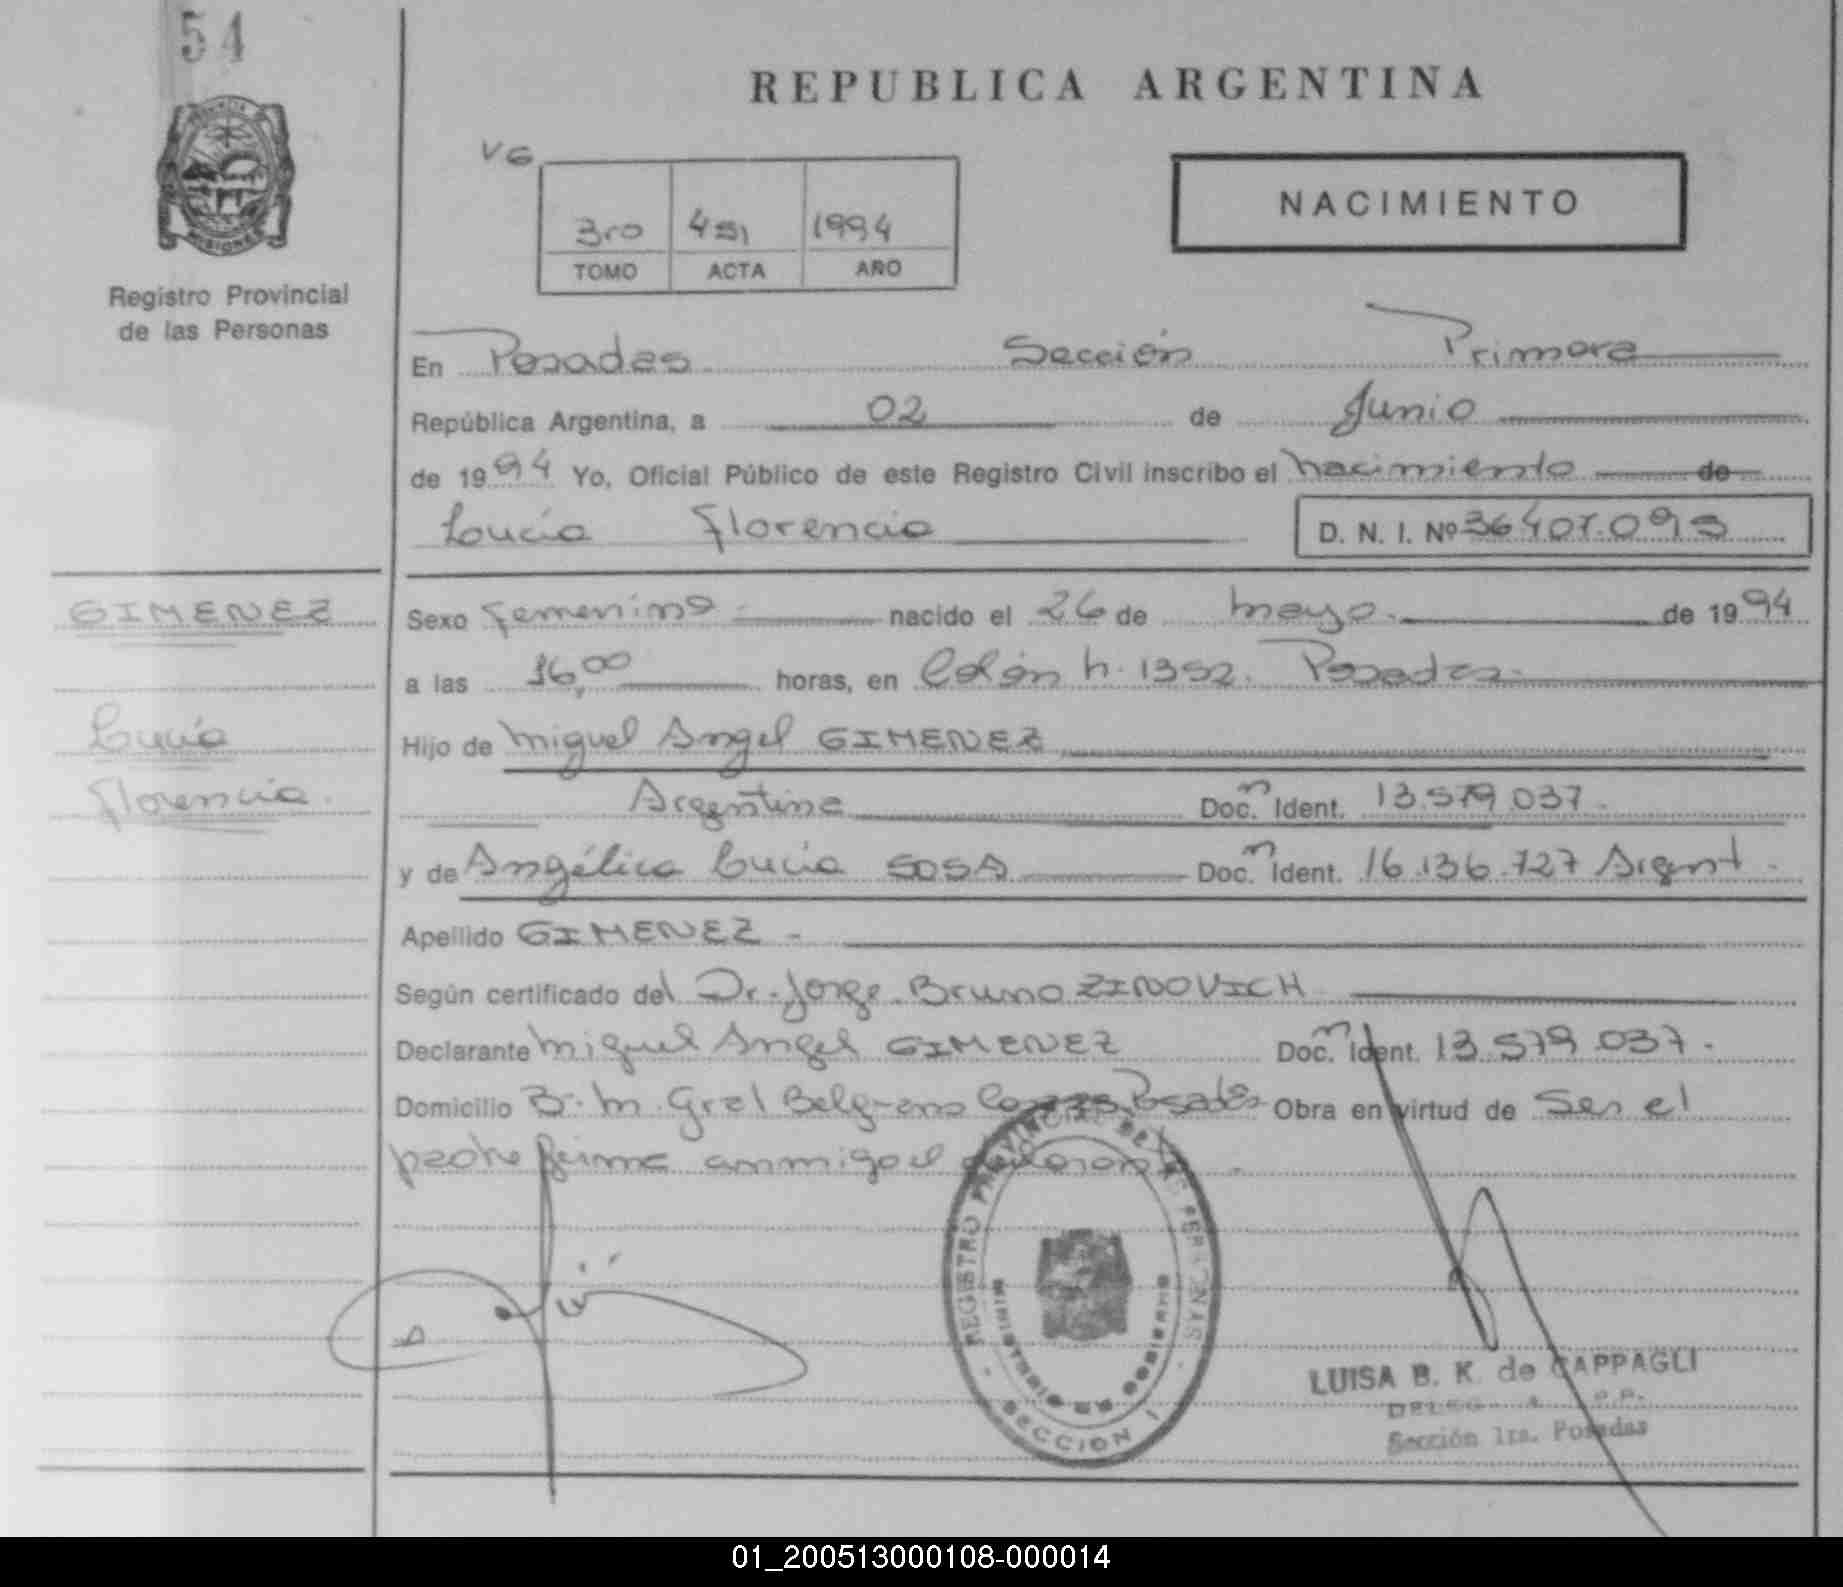 54
REPUBLICA ARGENTINA
V6
3ro 451 1994
TOMO ACTA AÑO
NACIMIENTO
PROVINCIA
MISIONES
Registro Provincial
de las Personas
En Posadas Sección Primera
República Argentina, a 02 de Junio
de 1994 Yo, Oficial Público de este Registro Civil inscribo el nacimiento de
Lucía Florencia D. N. I. Nº 36.407.093
GIMENEZ
Lucía
Florencia.
Sexo femenino nacido el 26 de mayo. de 1994
a las 16,00 horas, en Colón n. 1352. Posadas.
Hijo de Miguel Angel GIMENEZ
Argentina Doc.n Ident. 13.579.037.
y de Angélica Lucía SOSA Doc.n Ident. 16.136.727 Argent.
Apellido GIMENEZ -
Según certificado del Dr. Jorge Bruno ZINOVICH
Declarante Miguel Angel GIMENEZ Doc.n Ident. 13.579.037.
Domicilio B. M. Gral Belgrano Posadas Obra en virtud de Ser el
padre firma conmigo el declarante.
REGISTRO PROVINCIAL DE LAS PERSONAS
MINISTERIO DE GOBIERNO
- SECCION I -
LUISA B. K. de CAPPAGLI
Sección 1ra. Posadas
01_200513000108-000014